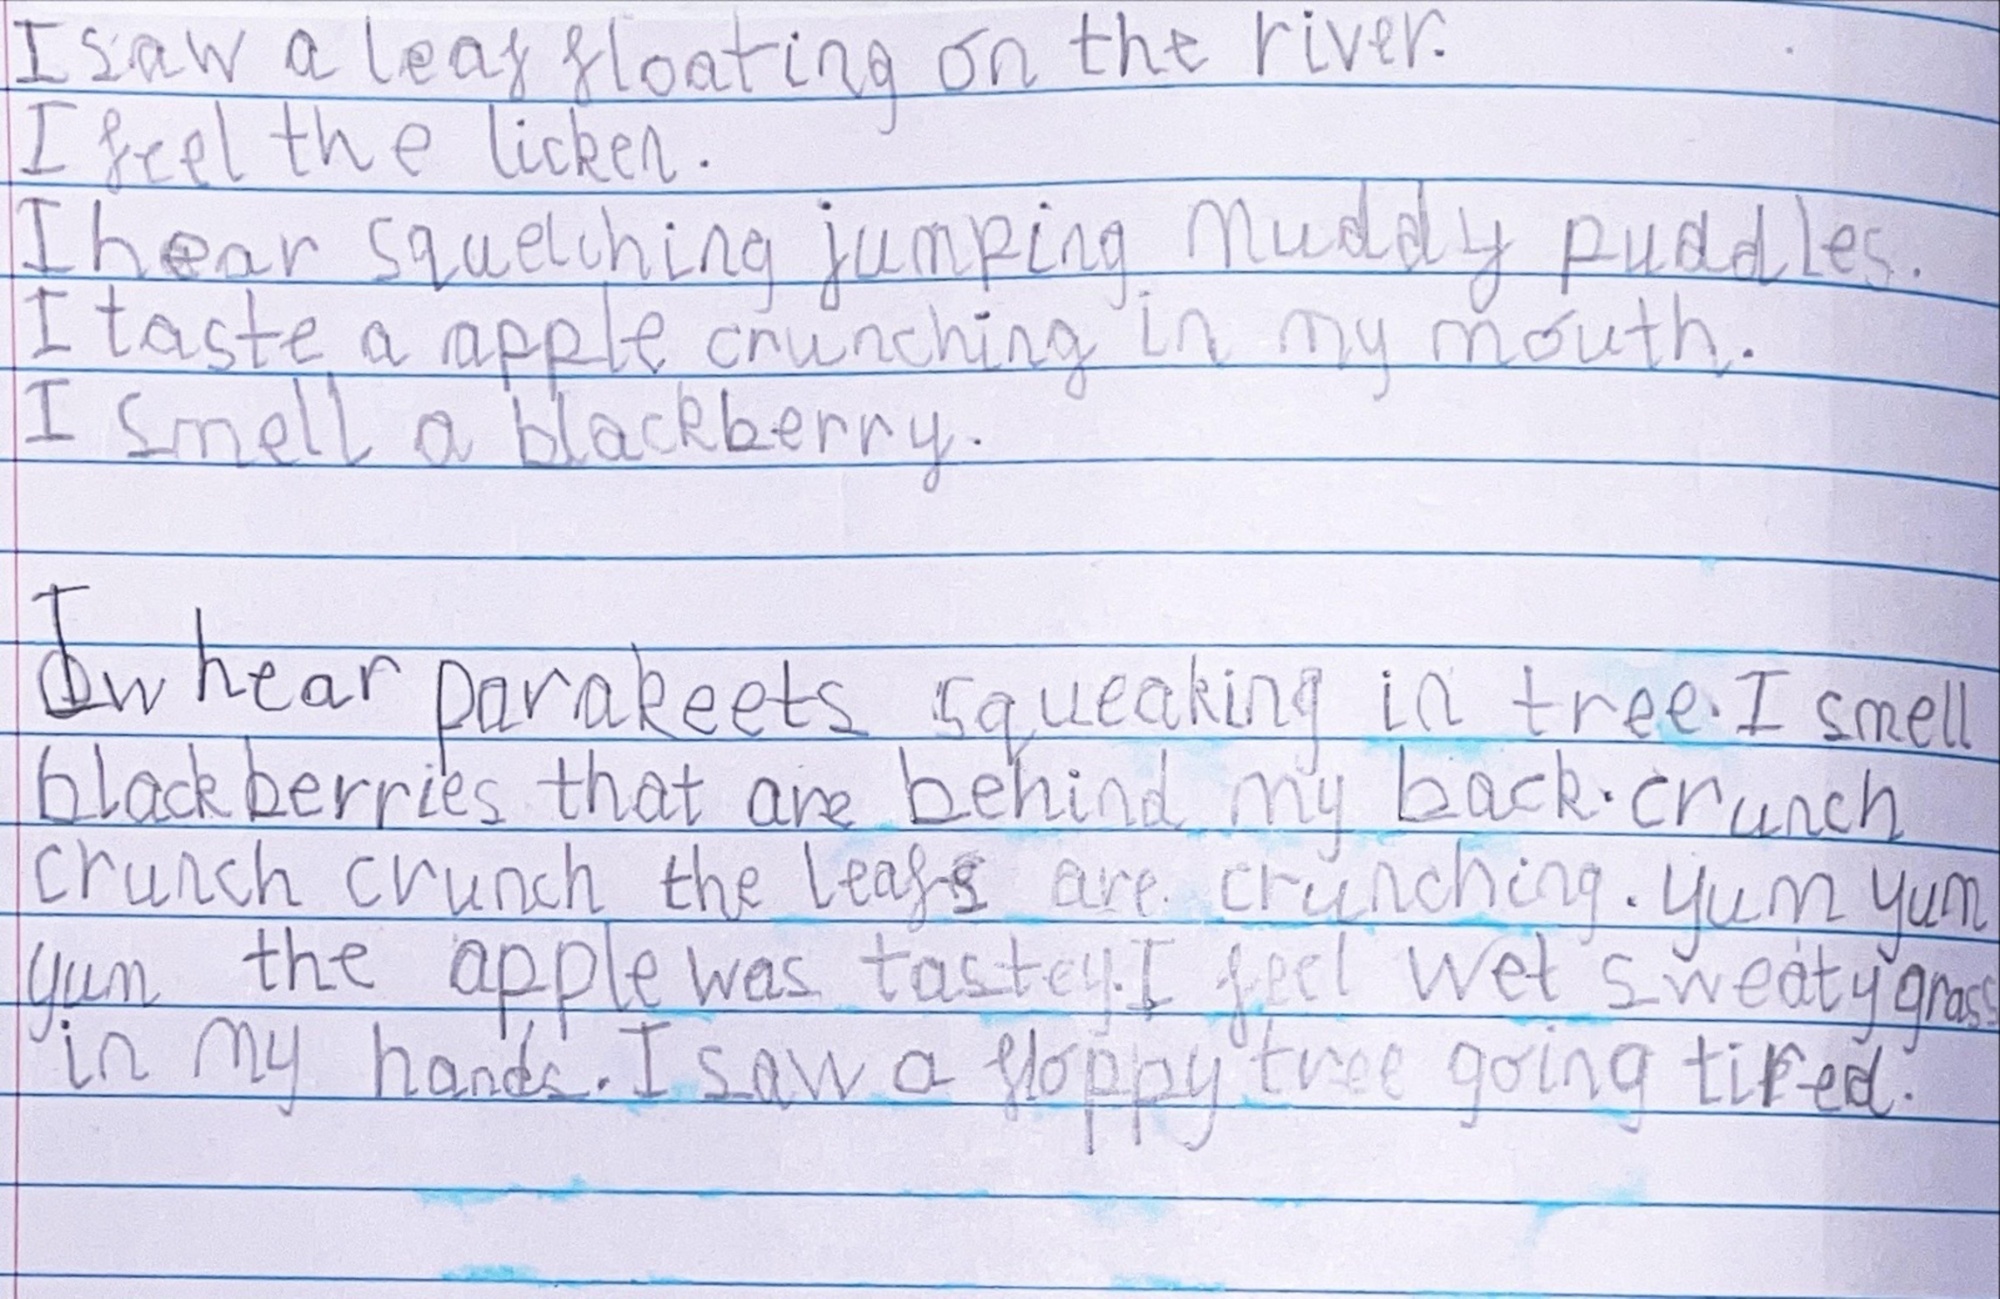 I saw a leaf floating on the river.
I feel the licken.
I hear squelching jumping muddy puddles.
I taste a apple crunching in my mouth.
I smell a blackberry.
I hear parakeets squeaking in tree. I smell
blackberries that are behind my back. crunch
crunch crunch the leafs are crunching. yum yum
yum the apple was tastey. I feel wet sweaty grass
in my hands. I saw a floppy tree going tired.